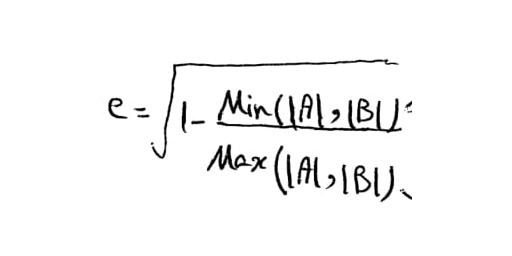 e = √(1 - Min(|A|, |B|) / Max(|A|, |B|))